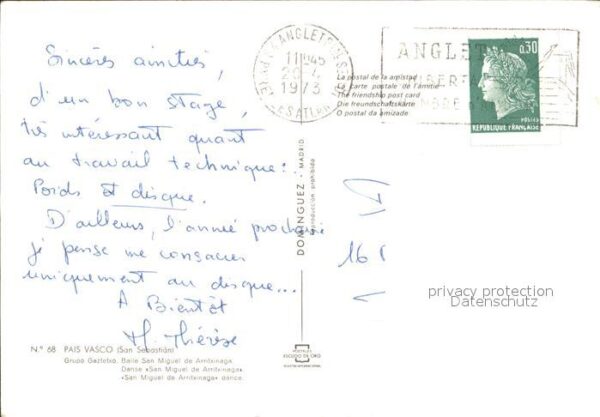 Sincères amitiés,
d'un bon stage,
très intéressant quant
au travail technique:
Poids et disque.
D'ailleurs, l'année prochaine
je pense me consacrer
uniquement au disque...
A Bientôt
M. Thérèse
N.º 68 PAIS VASCO (San Sebastián)
Grupo Gaztetxo. Baile San Miguel de Arritxinaga.
Danse «San Miguel de Arritxinaga»
«San Miguel de Arritxinaga» dance.
DOMINGUEZ - MADRID
Reproducción prohibida
POSTALES
ESCUDO DE ORO
ANGLET
11H45
1973
La postal de la amistad
La carte postale de l'amitié
The friendship post card
Die freundschaftskarte
O postal da amizade
ANGLET
0,30
POSTES
REPUBLIQUE FRANÇAISE
privacy protection
Datenschutz